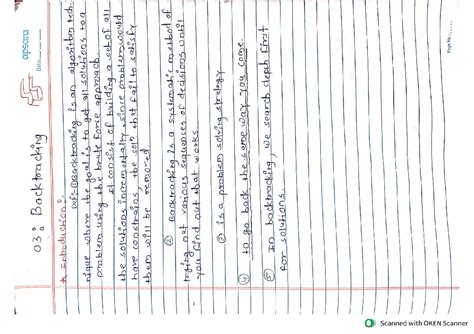 apsara
Date:
03: Backtracking
* Introduction :-
Def:- ① Backtracking is an algorithm tech-
nique where the goal is to get all solutions to a
problem using the brute force approach.
It consist of building a set of all
the solutions incrementally since problem would
have constrains, the soln that fail to satisfy
them will be removed
② Backtracking is a systematic method of
trying out various sequences of decisions until
you find out that works.
③ is a problem solving strategy
④ to go back the same way you come.
⑤ In backtracking, we search depth first
for solutions.
Page No.:
Scanned with OKEN Scanner